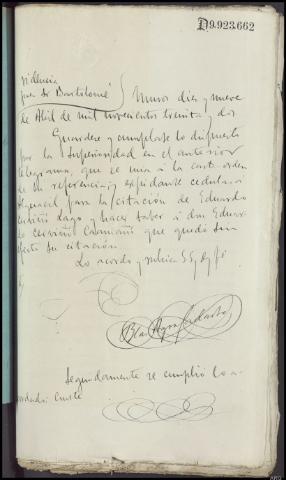 D9.923.662
videncia
juez Sr Bartolomé Muros diez y nueve
de Abril de mil novecientos treinta y dos
Guardese y cumplase lo dispuesto
por la Superioridad en el anterior
telegrama, que se una á la carta orden
de su referencia; y expidanse cedulas á
Alguacil para la citación de Eduardo
Lago y hacer saber á don Eduar-
do Caamaño que queda sin
efecto su citación.
Lo acordó y rubrica S.Sª, doy fé
Seguidamente se cumplió lo a-
cordado. Conste